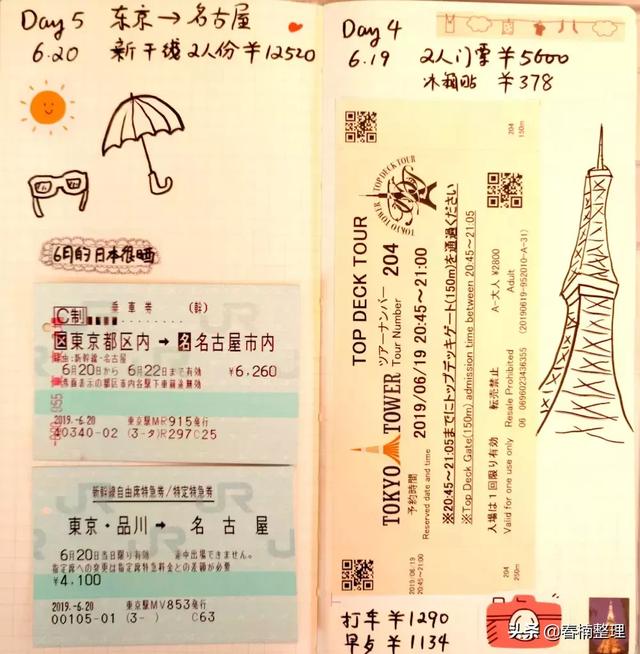 Day 5 东京→名古屋
6.20 新干线2人份￥12520
6月的日本很晒
C制 乗車券 (幹)
区東京都区内→名名古屋市内
経由:新幹線・名古屋
6月20日から 6月22日まで有効 ￥6,260
券面表示の都区市内各駅下車前途無効
2019.-6.20 東京駅MR915発行
40340-02 (3-タ)R297C25
新幹線自由席特急券/特定特急券
東京・品川→ 名古屋
6月20日当日限り有効 途中出場できません。
指定席への変更は指定席特急料金との差額が必要
￥4,100
2019.-6.20 東京駅MV853発行
00105-01 (3- ) C63
Day 4
6.19 2人门票￥5600
冰箱贴 ￥378
204
150m
TOP DECK TOUR
TOKYO TOWER
TOKYO TOWER TOP DECK TOUR
ツアーナンバー 204
Tour Number
予約時間 2019/06/19 20:45～21:00
Reserved date and time
※20:45～21:05までにトップデッキゲート(150m)を通過ください
※Top Deck Gate(150m) admission time between 20:45～21:05
A-大人 ¥2800
Adult
入場は1回限り有効 転売禁止 (20190619-952010-A-31)
Valid for one use only Resale Prohibited 06 0696023436355
2019/06/19
20:45～21:00
204
250m
打车 ￥1290
早点 ￥1134
头条 @春楠整理